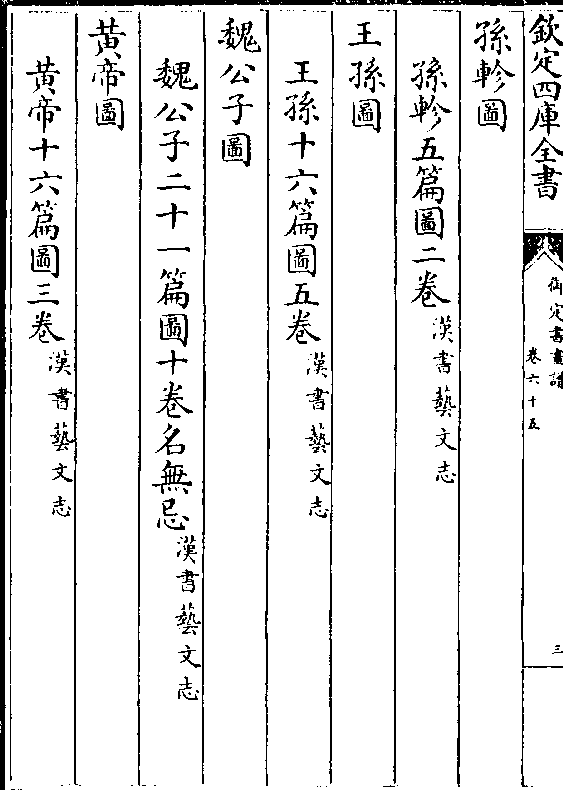 欽定四庫全書
御定書畫譜
卷六十五
三
孫軫圖
孫軫五篇圖二卷漢書藝文志
王孫圖
王孫十六篇圖五卷漢書藝文志
魏公子圖
魏公子二十一篇圖十卷名無忌漢書藝文志
黄帝圖
黄帝十六篇圖三卷漢書藝文志